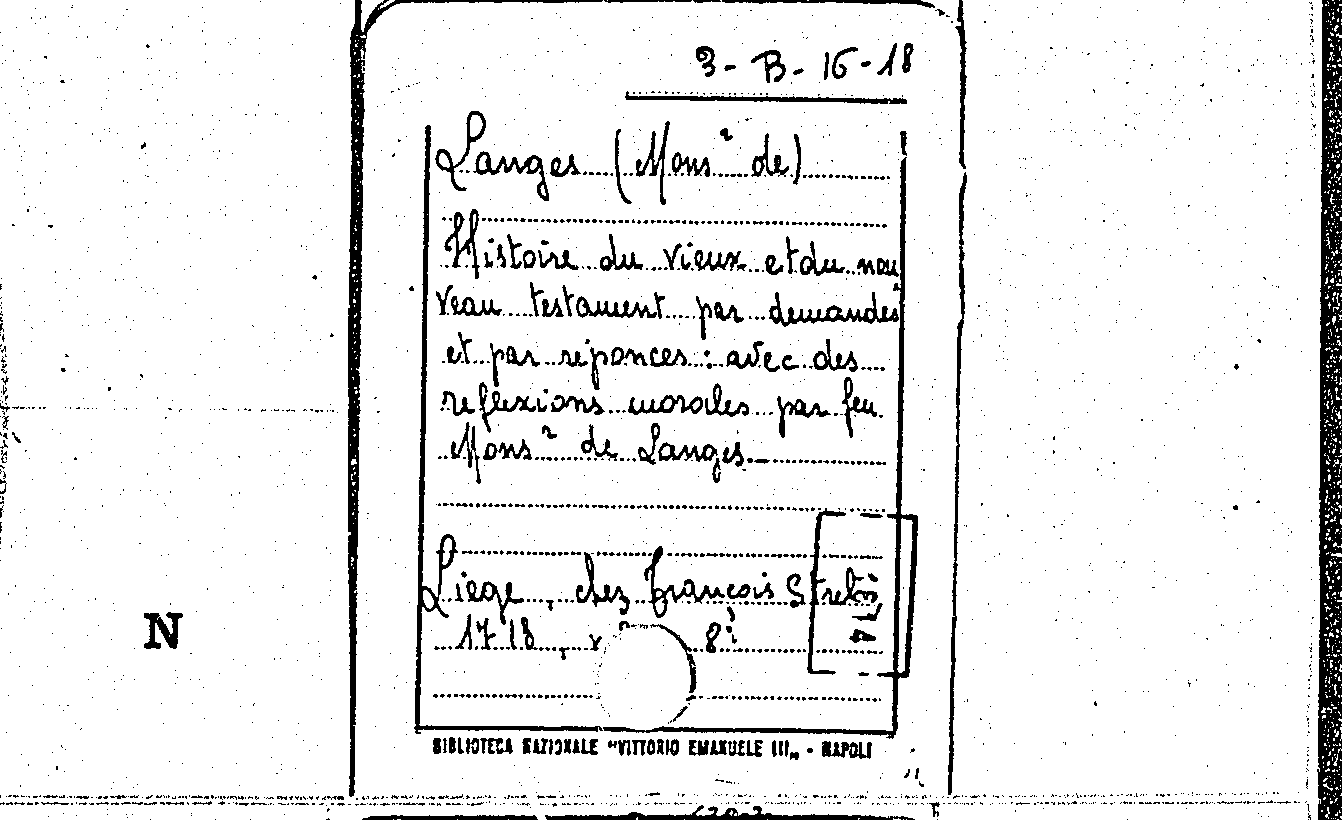 3-B-16-18
Langes (Monsʳ de)
Histoire du vieux et du nou
veau testament par demandes
et par réponces: avec des
reflexions morales par feu
Monsʳ de Langes.
Liege, chez François
1718, 8º
14
N
BIBLIOTECA NAZIONALE "VITTORIO EMANUELE III„ - NAPOLI